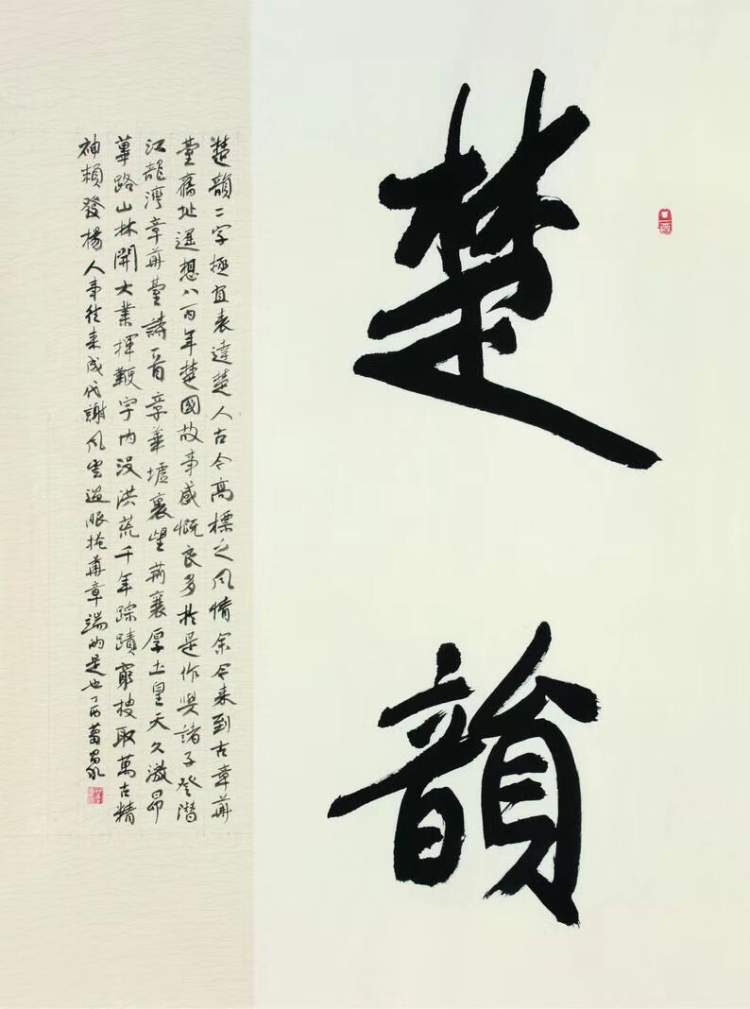 楚韻
楚韻二字極宜表達楚人古今高標之風情余今來到古章華
臺舊址遥想八百年楚國故事感慨良多於是作與諸子登潛
江龍灣章華臺詩一首章華墟裏望荊襄厚土皇天久激昂
篳路山林開大業揮鞭宇內沒洪荒千年踪蹟窮搜取萬古精
神賴發揚人事往來成代謝風雲過眼挹華章端的是也